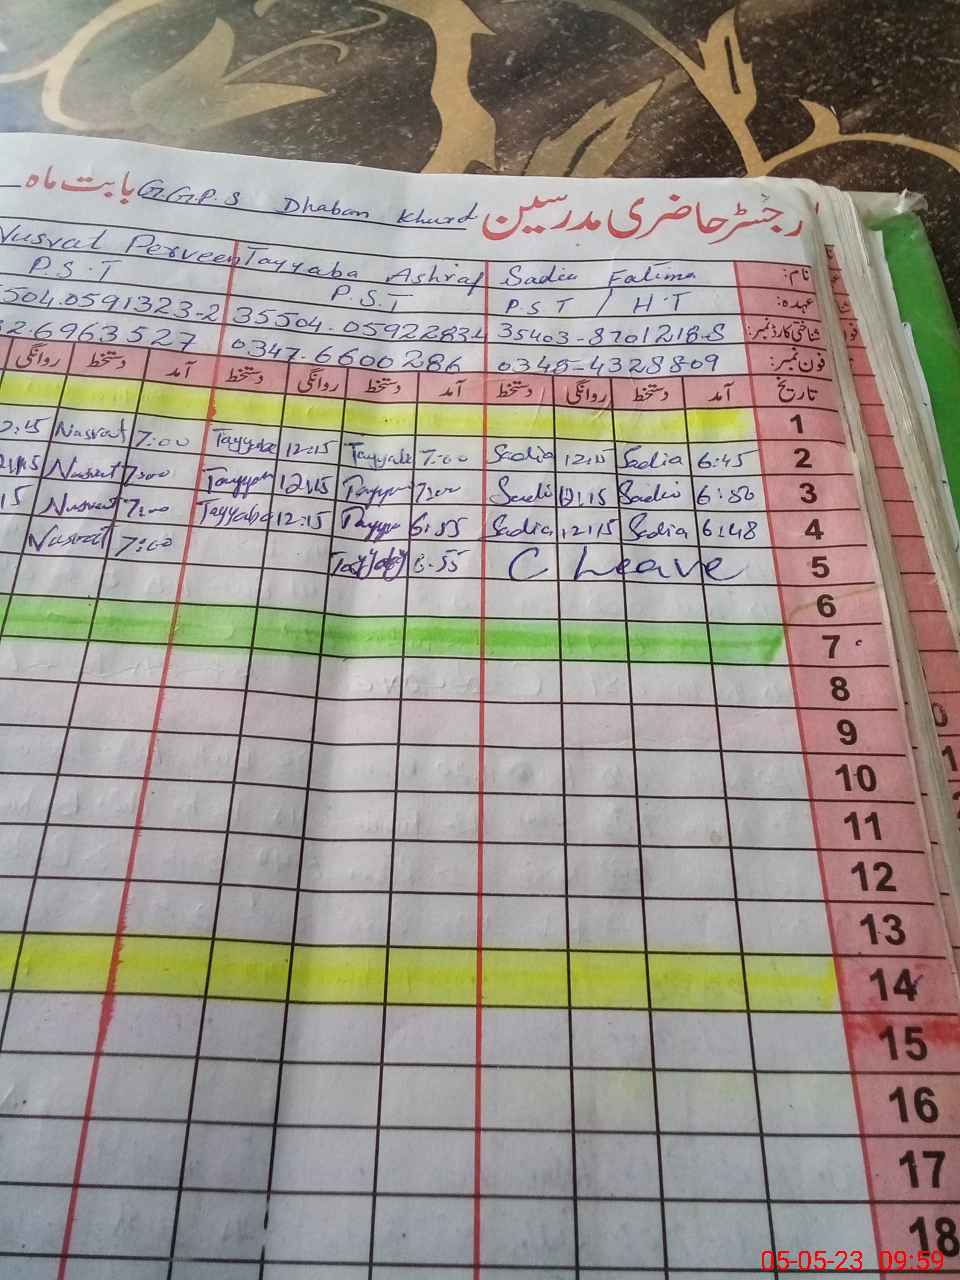 رجسٹر حاضری مدرسین G.G.P.S Dhaban Khurd بابت ماہ
نام: Sadia Fatima Tayyaba Ashraf Nusrat Perveen
عہدہ: P.S.T / H.T P.S.T P.S.T
شناختی کارڈ نمبر: 35403-8701218-8 35504.0592283.4 504.0591323-2
فون نمبر: 0348-4328809 0347.6600286 2.6963527
تاریخ آمد دستخط روانگی دستخط آمد دستخط روانگی دستخط آمد دستخط روانگی
1
2 6:45 Sadia 12:15 Sadia 7:00 Tayyaba 12:15 Tayyaba 7:00 Nusrat 2:15
3 6:50 Sadia 12:15 Sadia 7:00 Tayyaba 12:15 Tayyaba 7:00 Nusrat
4 6:48 Sadia 12:15 Sadia 6:55 Tayyaba 12:15 Tayyaba 7:00 Nusrat 15
5 C Leave 6:55 Tayyaba 7:00 Nusrat
6
7
8
9
10
11
12
13
14
15
16
17
18
05-05-23 09:59